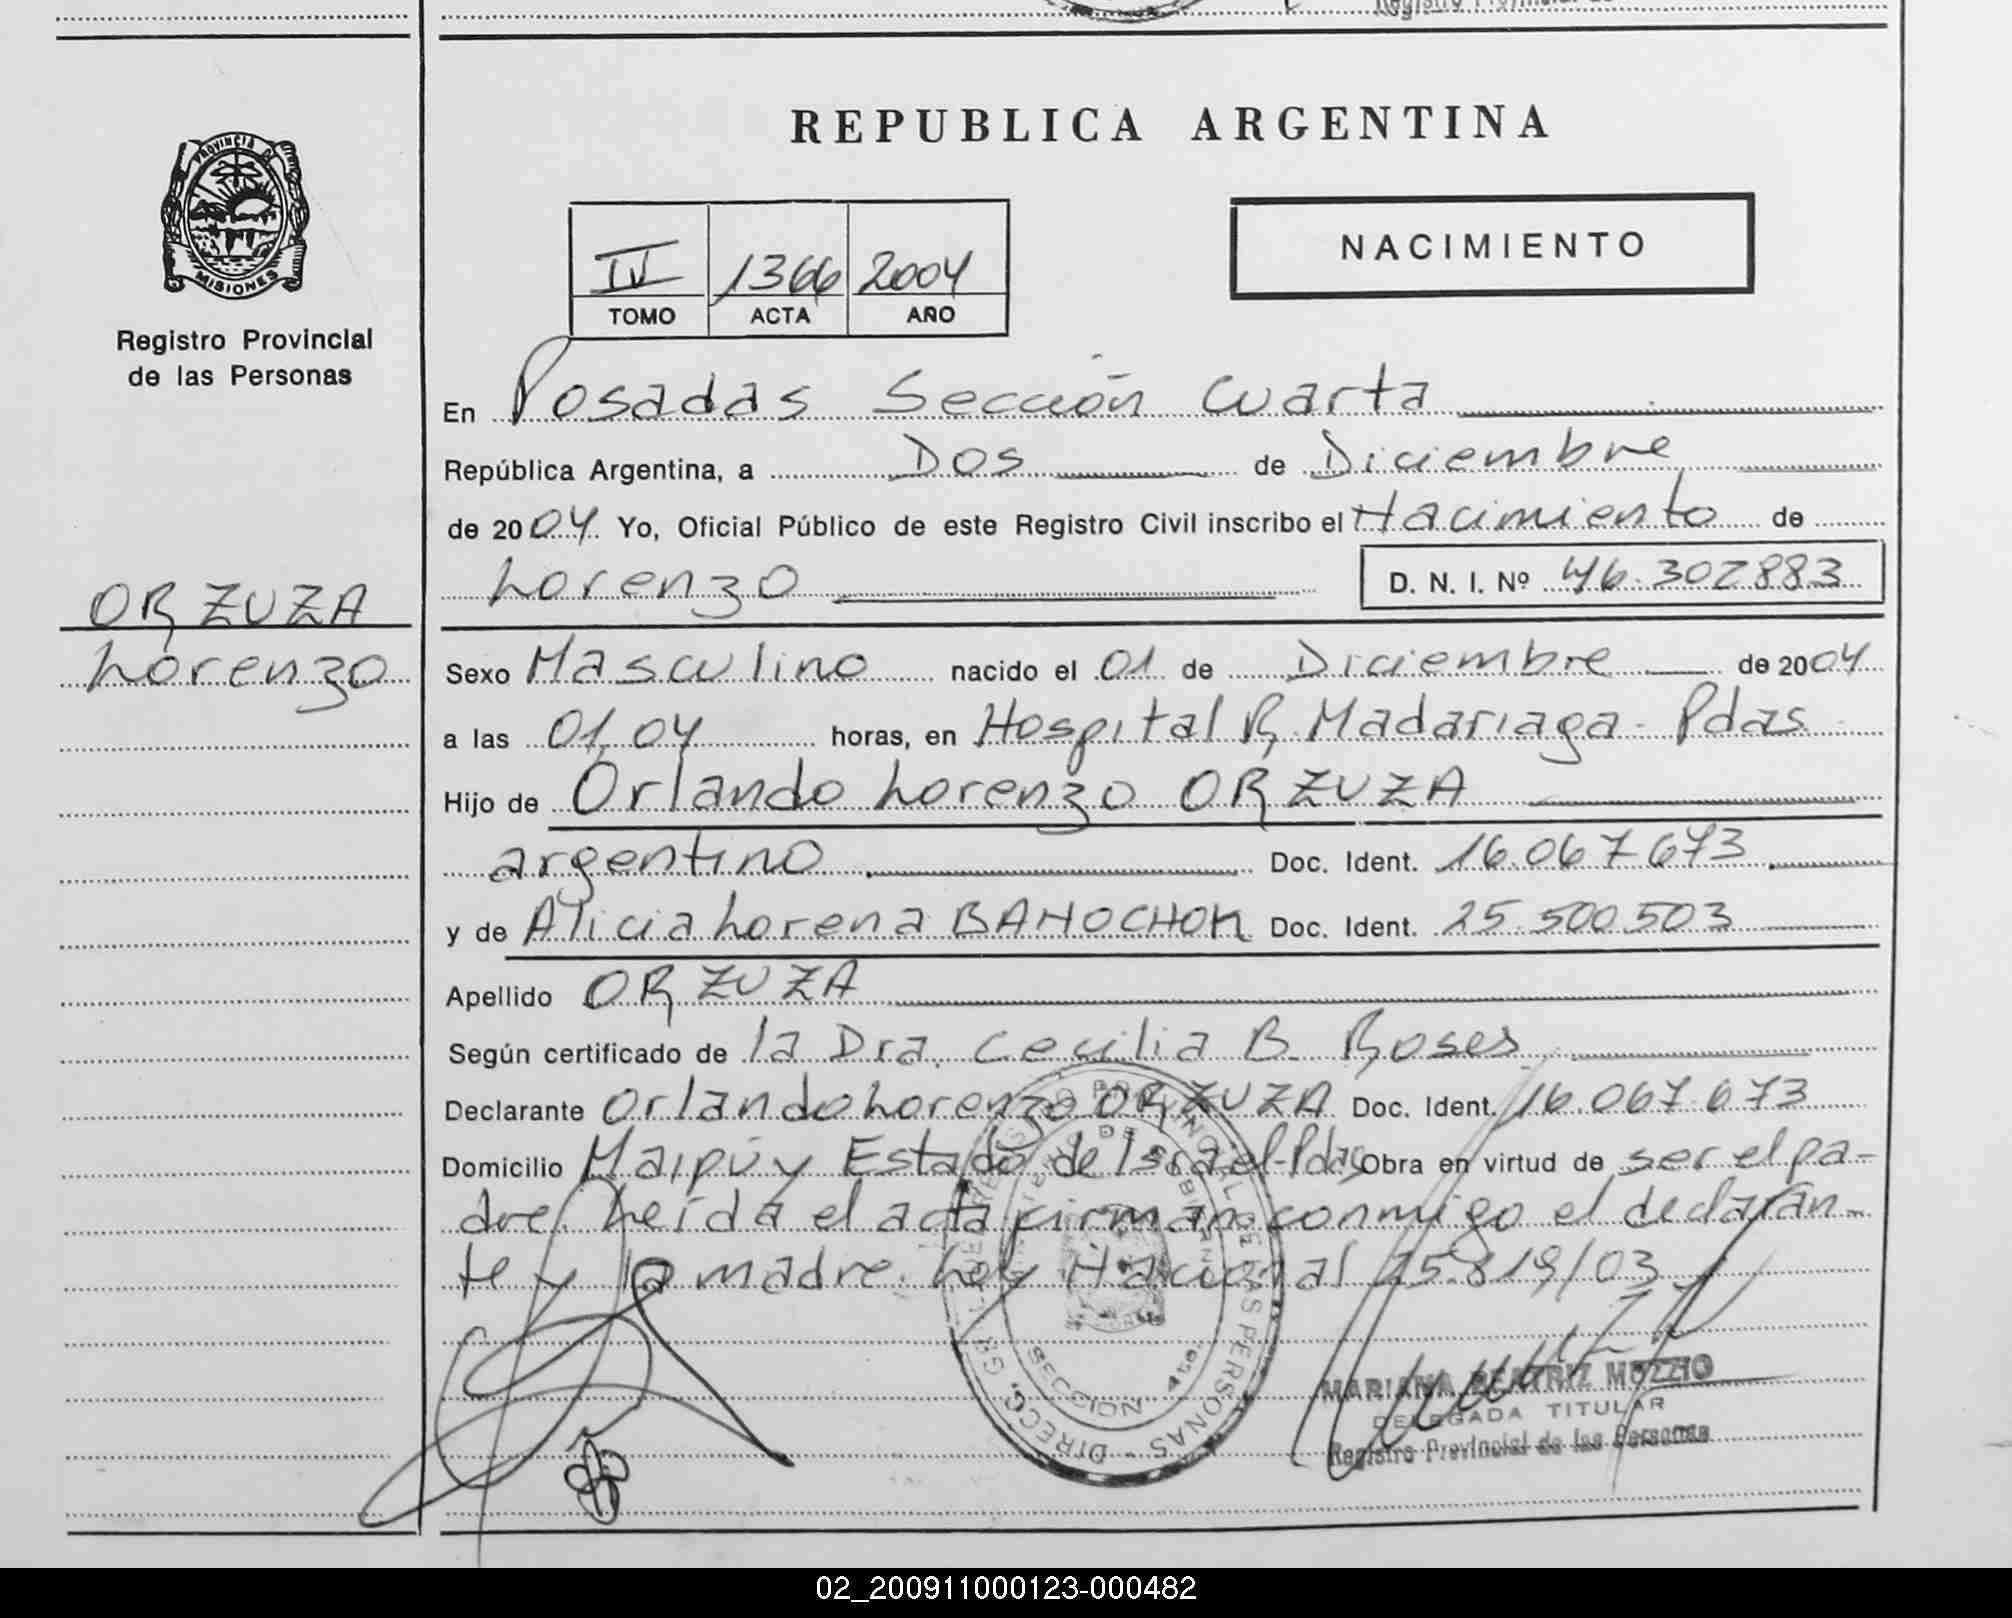 REPUBLICA ARGENTINA
PROVINCIA D
MISIONES
Registro Provincial
de las Personas
NACIMIENTO
IV 1366 2004
TOMO ACTA AÑO
En Posadas Sección Cuarta
República Argentina, a Dos de Diciembre
de 2004 Yo, Oficial Público de este Registro Civil inscribo el Nacimiento de
Lorenzo D. N. I. Nº 46.302883
ORZUZA
Lorenzo
Sexo Masculino nacido el 01 de Diciembre de 2004
a las 01,04 horas, en Hospital R. Madariaga - Pdas
Hijo de Orlando Lorenzo ORZUZA
argentino Doc. Ident. 16.067.673
y de Alicia Lorena Doc. Ident. 25.500.503
Apellido ORZUZA
Según certificado de la Dra. Cecilia B. Roses
Declarante Orlando Lorenzo ORZUZA Doc. Ident. 16.067.673
Domicilio Maipú y Estado de Israel-Pdas Obra en virtud de ser el pa-
dre. Leída el acta firman conmigo el declaran-
te y la madre. Ley Nacional 25.819/03
MARIANA BEATRIZ MOZZIO
DELEGADA TITULAR
Registro Provincial de las Personas
SECCION 4ta.
02_200911000123-000482